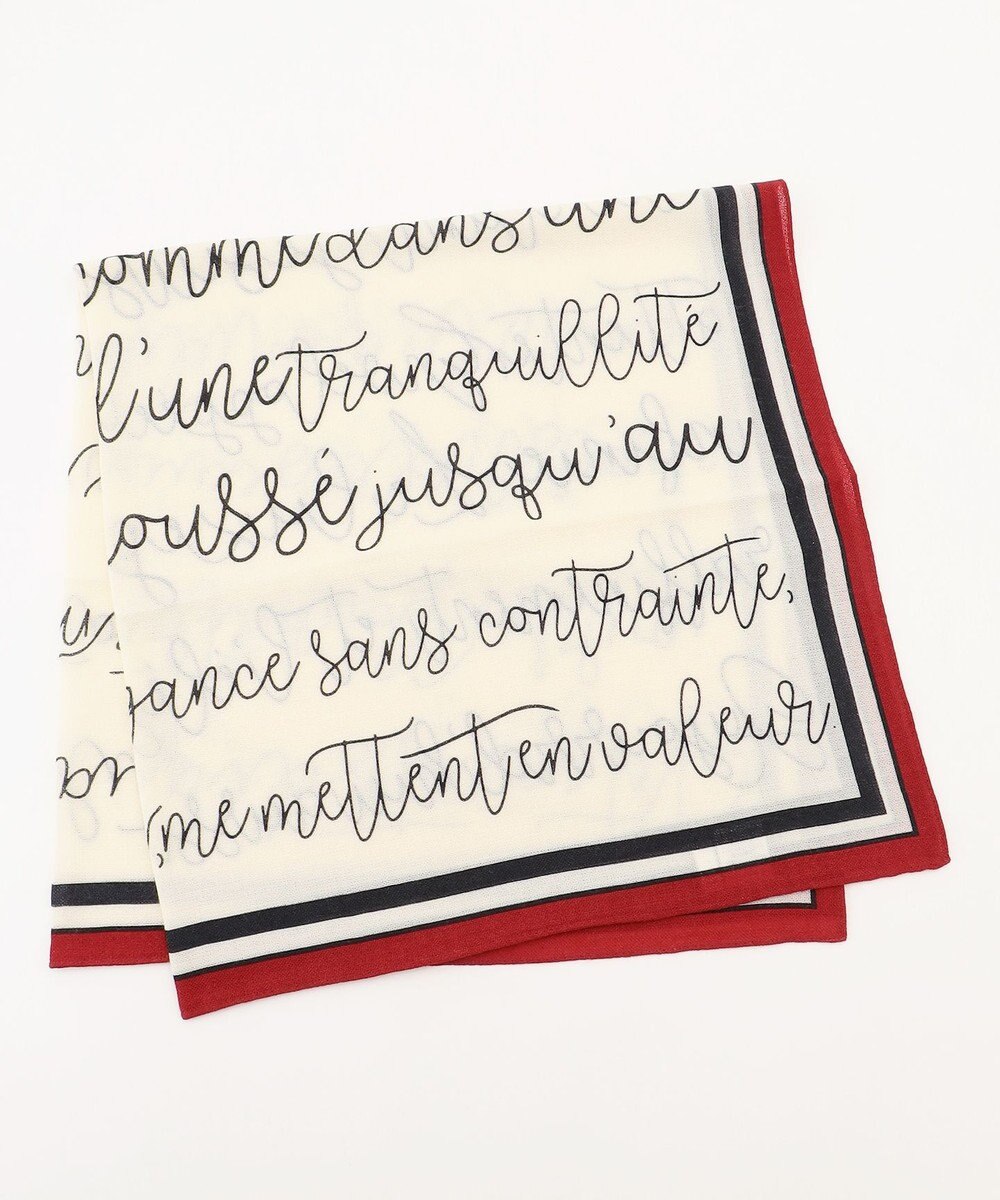 comme dans une
l'une tranquillité
oussé jusqu'au
rance sans contrainte,
me mettent en valeur